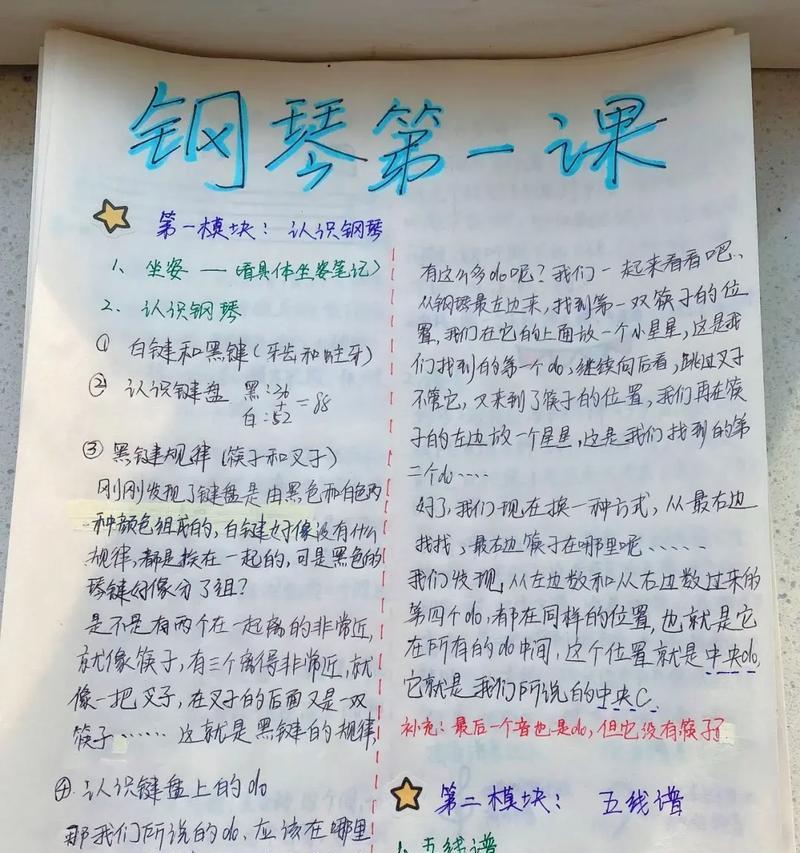 钢琴第一课
第一模块：认识钢琴
1、坐姿——（看具体坐姿笔记）
2、认识钢琴
① 白键和黑键（牙齿和蛀牙）
② 认识键盘 黑：36
+
白：52 =88
③ 黑键规律（筷子和叉子）
刚刚发现了键盘是由黑色和白色两
种颜色组成的，白键好像没有什么
规律，都是挨在一起的，可是黑色的
琴键好像分了组？
是不是有两个在一起离的非常近，
就像筷子，有三个离得非常近，就
像一把叉子，在叉子的后面又是一双
筷子……这就是黑键的规律，
④ 认识键盘上的do
那我们所说的do，应该在哪里
有这么多do呢？我们一起来看看吧..
从钢琴最左边来，找到第一双筷子的位
置，我们在它的上面放一个小星星，这是我
们找到的第一个do，继续向后看，跳过叉子
不管它，又来到了筷子的位置，我们再在筷
子的左边放一个星星，这是我们找到的第
二个do……
好了，我们现在换一种方式，从最右边
找找，最右边筷子在哪里呢……
我们发现，从左边数和从右边数过来的
第四个do，都在同样的位置，也就是它
在所有的do中间，这个位置就是中央do，
它就是我们所说的中央C.
补充：最后一个音也是do，但它没有筷子了
第二模块：五线谱
1、五线谱